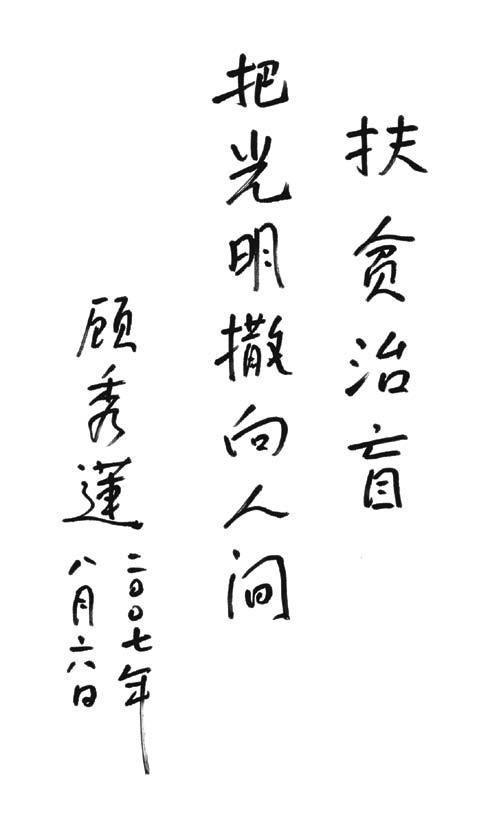 扶贫治盲
把光明撒向人间
顾秀蓮
二〇〇七年
八月六日